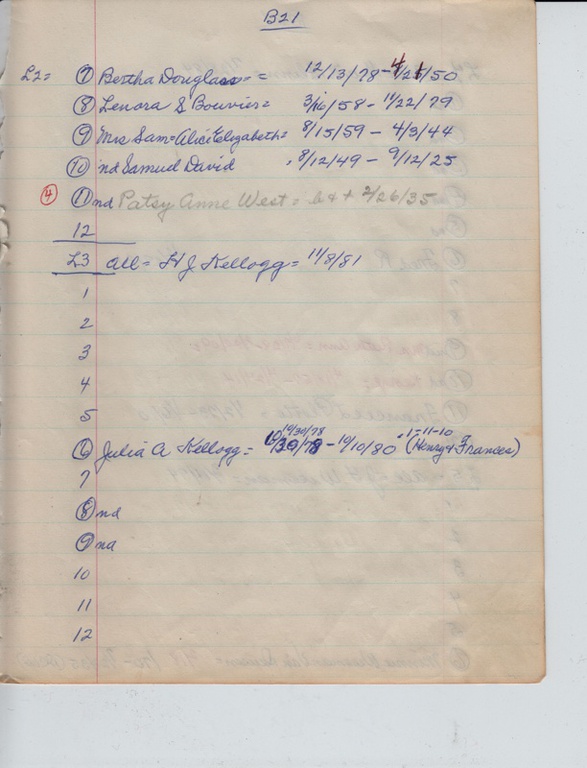 B21
L2= (7) Bertha Douglass = = 12/13/78 - 4/26/50
(8) Lenora S Bouvier = 3/16/58 - 11/22/79
(9) Mrs Sam = Alice Elizabeth = 8/15/59 - 4/3/44
(10) nd Samuel David , 8/12/49 - 9/12/25
(4) (11) nd Patsy Anne West = b & + 2/26/35
12
L3 all = H J Kellogg = 11/8/81
1
2
3
4
5
10/30/78
(6) Julia A Kellogg = 10/30/78 - 10/10/80 "1-11-10 (Henry & Frances)
7
(8) nd
(9) na
10
11
12